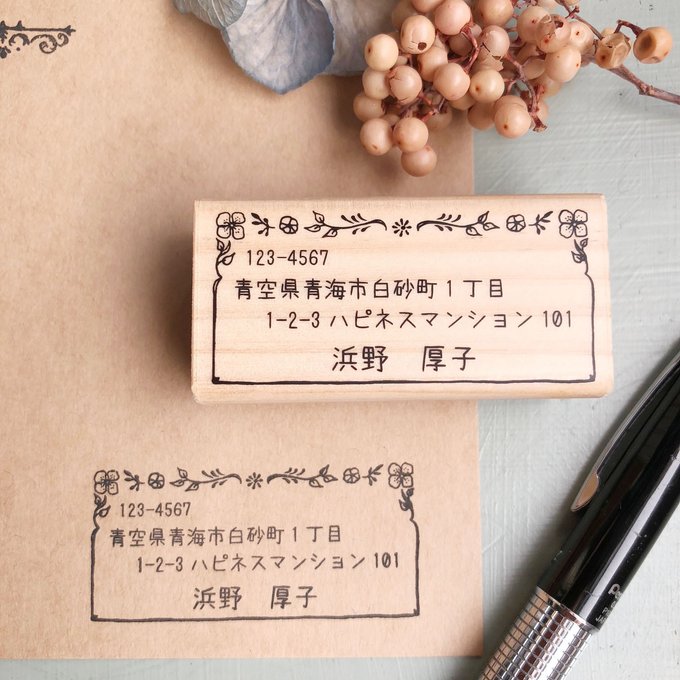 123-4567
青空県青海市白砂町1丁目
1-2-3 ハピネスマンション101
浜野 厚子
123-4567
青空県青海市白砂町1丁目
1-2-3 ハピネスマンション101
浜野 厚子